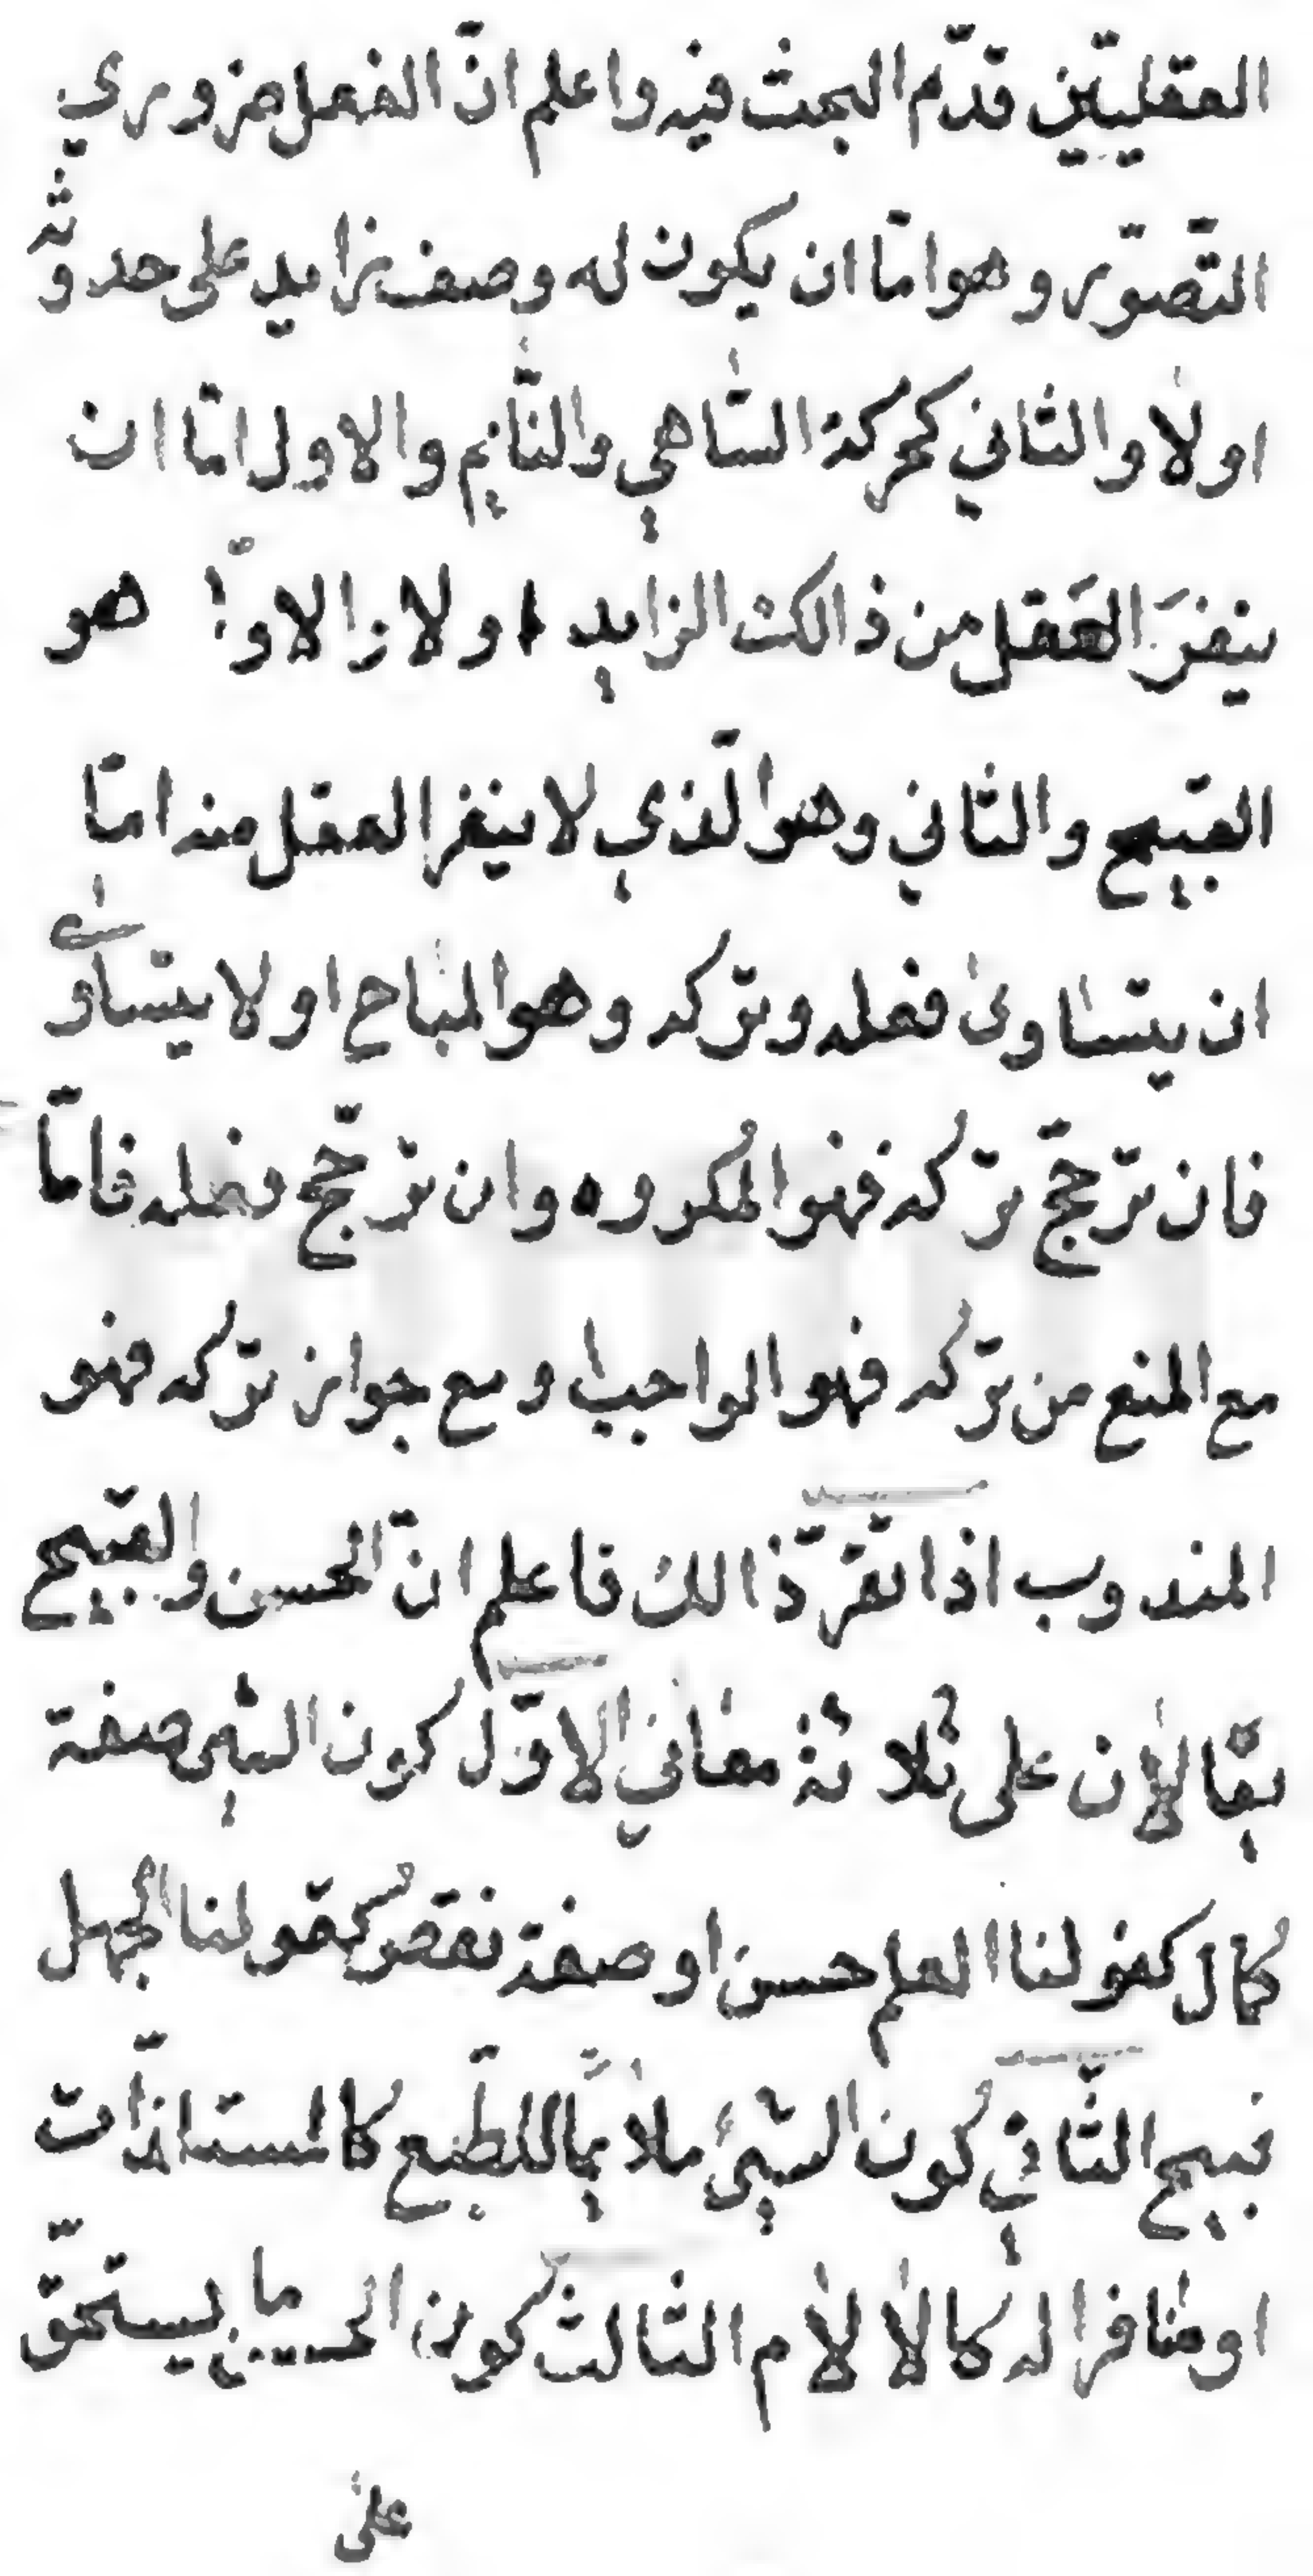 العقليّين قدّم البحث فيه واعلم انّ الفعل ضروري
التّصوّر وهو امّا ان يكون له وصف زايد على حدوثه
اولا والثاني كحركة السّاهي والنّايم والاول امّا ان
ينفرَ العَقل من ذالك الزايد اولا والاول هو
القبيح والثاني وهو الّذي لا ينفر العقل منه امّا
ان يتساوى فعله وتركه وهو المباح او لا يتساوى
فان ترجّح تركه فهو المكروه وان ترجّح فعله فامّا
مع المنع من تركه فهو الواجب او مع جواز تركه فهو
المندوب اذا تقرّر ذالك فاعلم انّ الحسن والقبيح
يقالان على ثلاثة معاني الاوّل كون الشيئ صفة
كمال كقولنا العلم حسن او صفة نقص كقولنا الجهل
قبيح الثّاني كون الشيئ ملايمًا للطّبع كالمستلذّات
او منافرا له كالالام الثالث كون الحسن ما يستحقّ
على